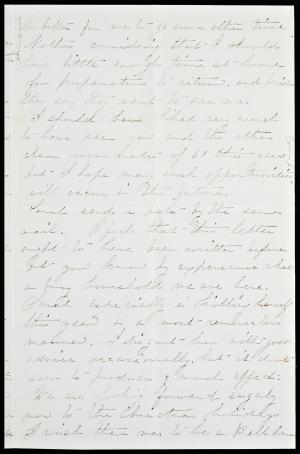 be better for me to go some other time.
Mother considering that I should
have little enough time at home
for preparation to return, and besides
they say they want to see me.
I should have liked very much
to have seen you and the other
dear room mates of '81 this year
but I hope many such opportunities
will occur in the future.
Sarah sends a note by the same
mail. I feel that this letter
ought to have been written before
but you know by experience what
a busy household we are here.
Sarah especially is killing herself
this year in a most remorseless
manner. I disgust her with good
advice occasionally, but it don't
seem to produce much effect.
We are looking forward eagerly
now to the Christmas holidays
I wish there was to be a Bell here